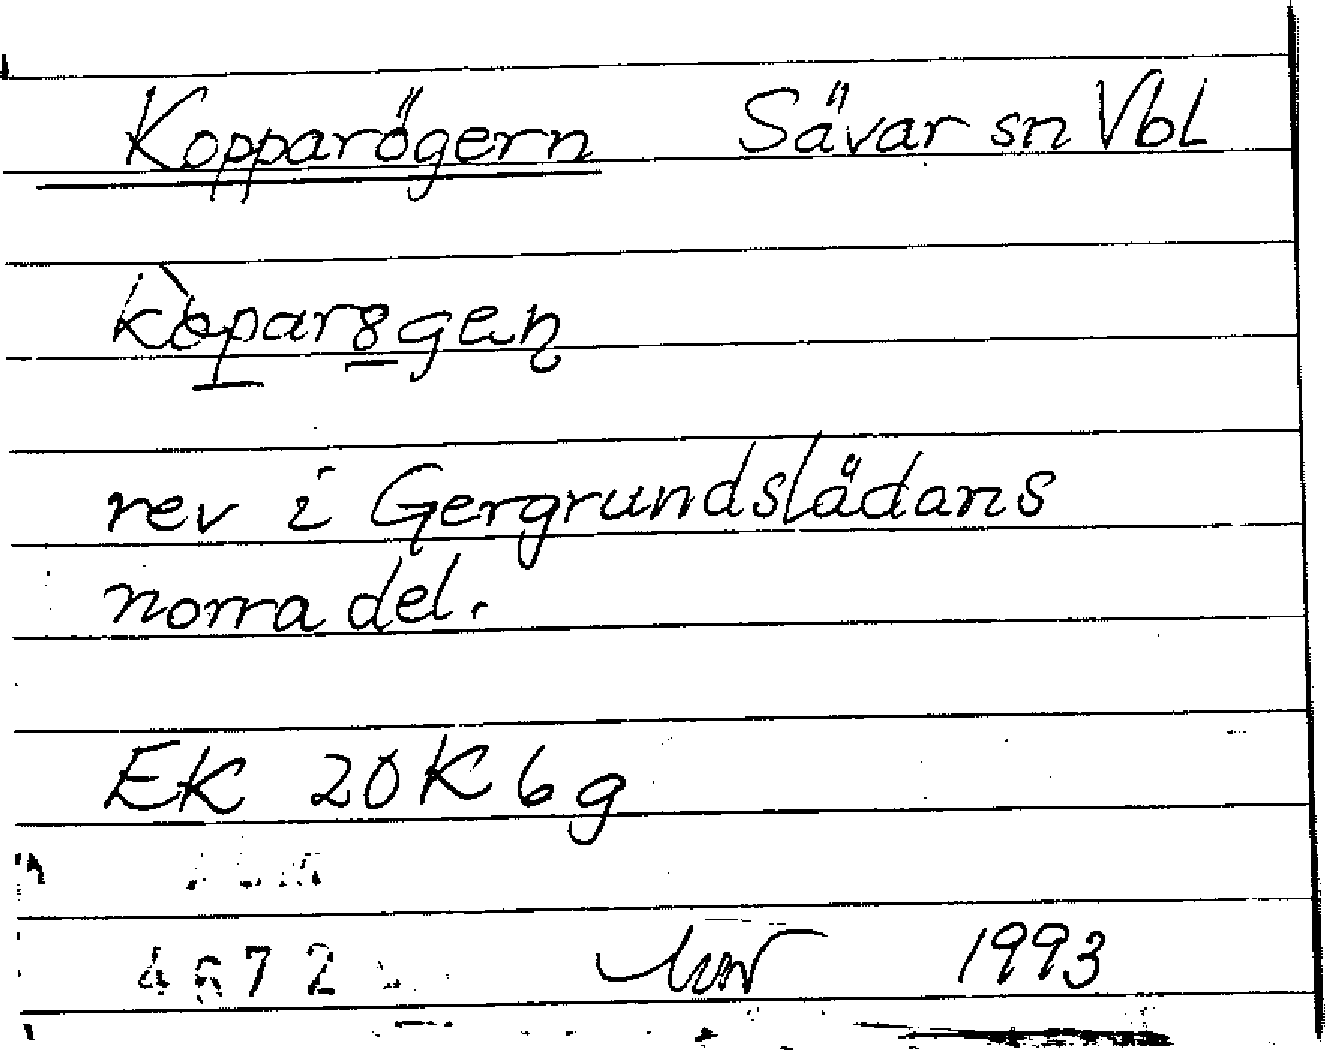 Kopparögern Sävar sn Vbl
kòpar8gen̥
rev i Gergrundslådans
norra del.
EK 20K 6g
4672 1993